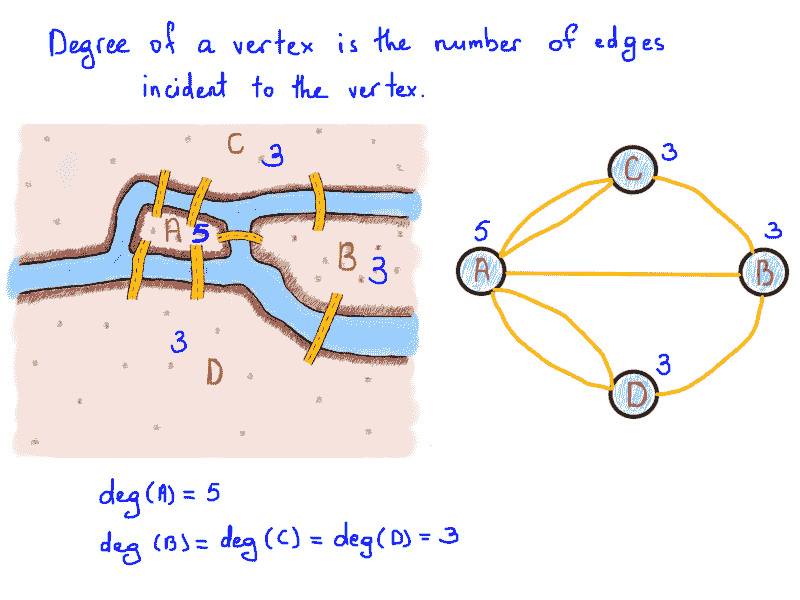 Degree of a vertex is the number of edges
incident to the vertex.
C 3
A 5
B 3
3
D
C 3
5
A
3
B
3
D
deg(A) = 5
deg (B) = deg (C) = deg(D) = 3